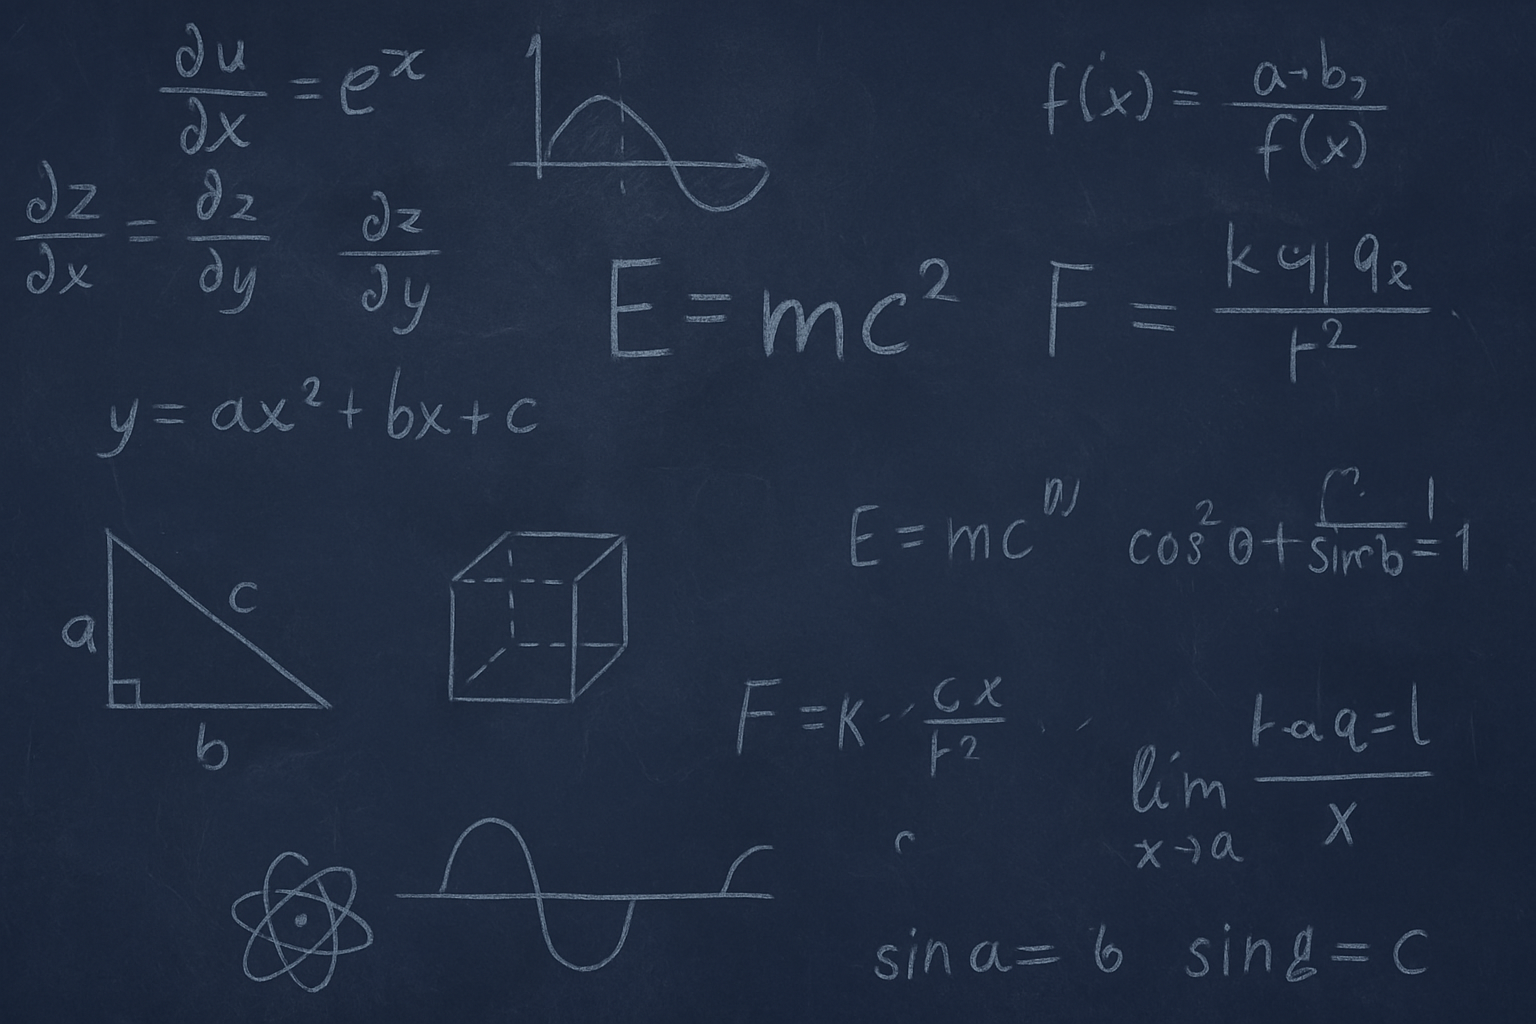 ∂u/∂x = e^x
f(x) = a→b,/f(x)
∂z/∂x = ∂z/∂y ∂z/∂y
E = mc²
F = k q| q₂/r²
y = ax² + bx + c
E = mc
cos²θ +
= 1
a
c
b
F = K
c x/r²
lim x→a
x
sin a = b sin g = c